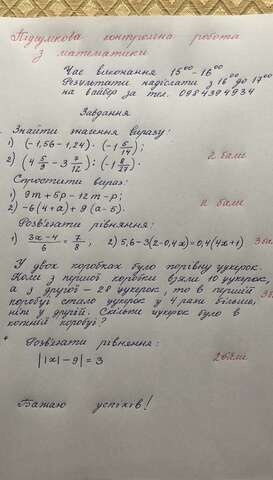 Підсумкова контрольна робота
з математики
Час виконання 15⁰⁰-16⁰⁰
Результати надіслати з 16⁰⁰ до 17⁰⁰
на вайбер за тел.
Завдання
Знайти значення виразу:
1) (-1,56-1,24)·(-1 5/14);
2) (4 5/9 - 3 7/12) : (-1 8/27). 2 бали
Спростити вираз:
1) 9m+5p-12m-p;
2) -6(4+a)+9(a-5). 2 бали
Розв'язати рівняння:
1) (3x-4)/6 = 7/8, 2) 5,6-3(2-0,4x)=0,4(4x+1) 3
У двох коробках було порівну цукерок.
Коли з першої коробки взяли 10 цукерок,
а з другої - 28 цукерок, то в першій 3
коробці стало цукерок у 4 рази більше,
ніж у другій. Скільки цукерок було в
кожній коробці?
* Розв'язати рівняння:
||x|-9|=3 2 бали
Бажаю успіхів!